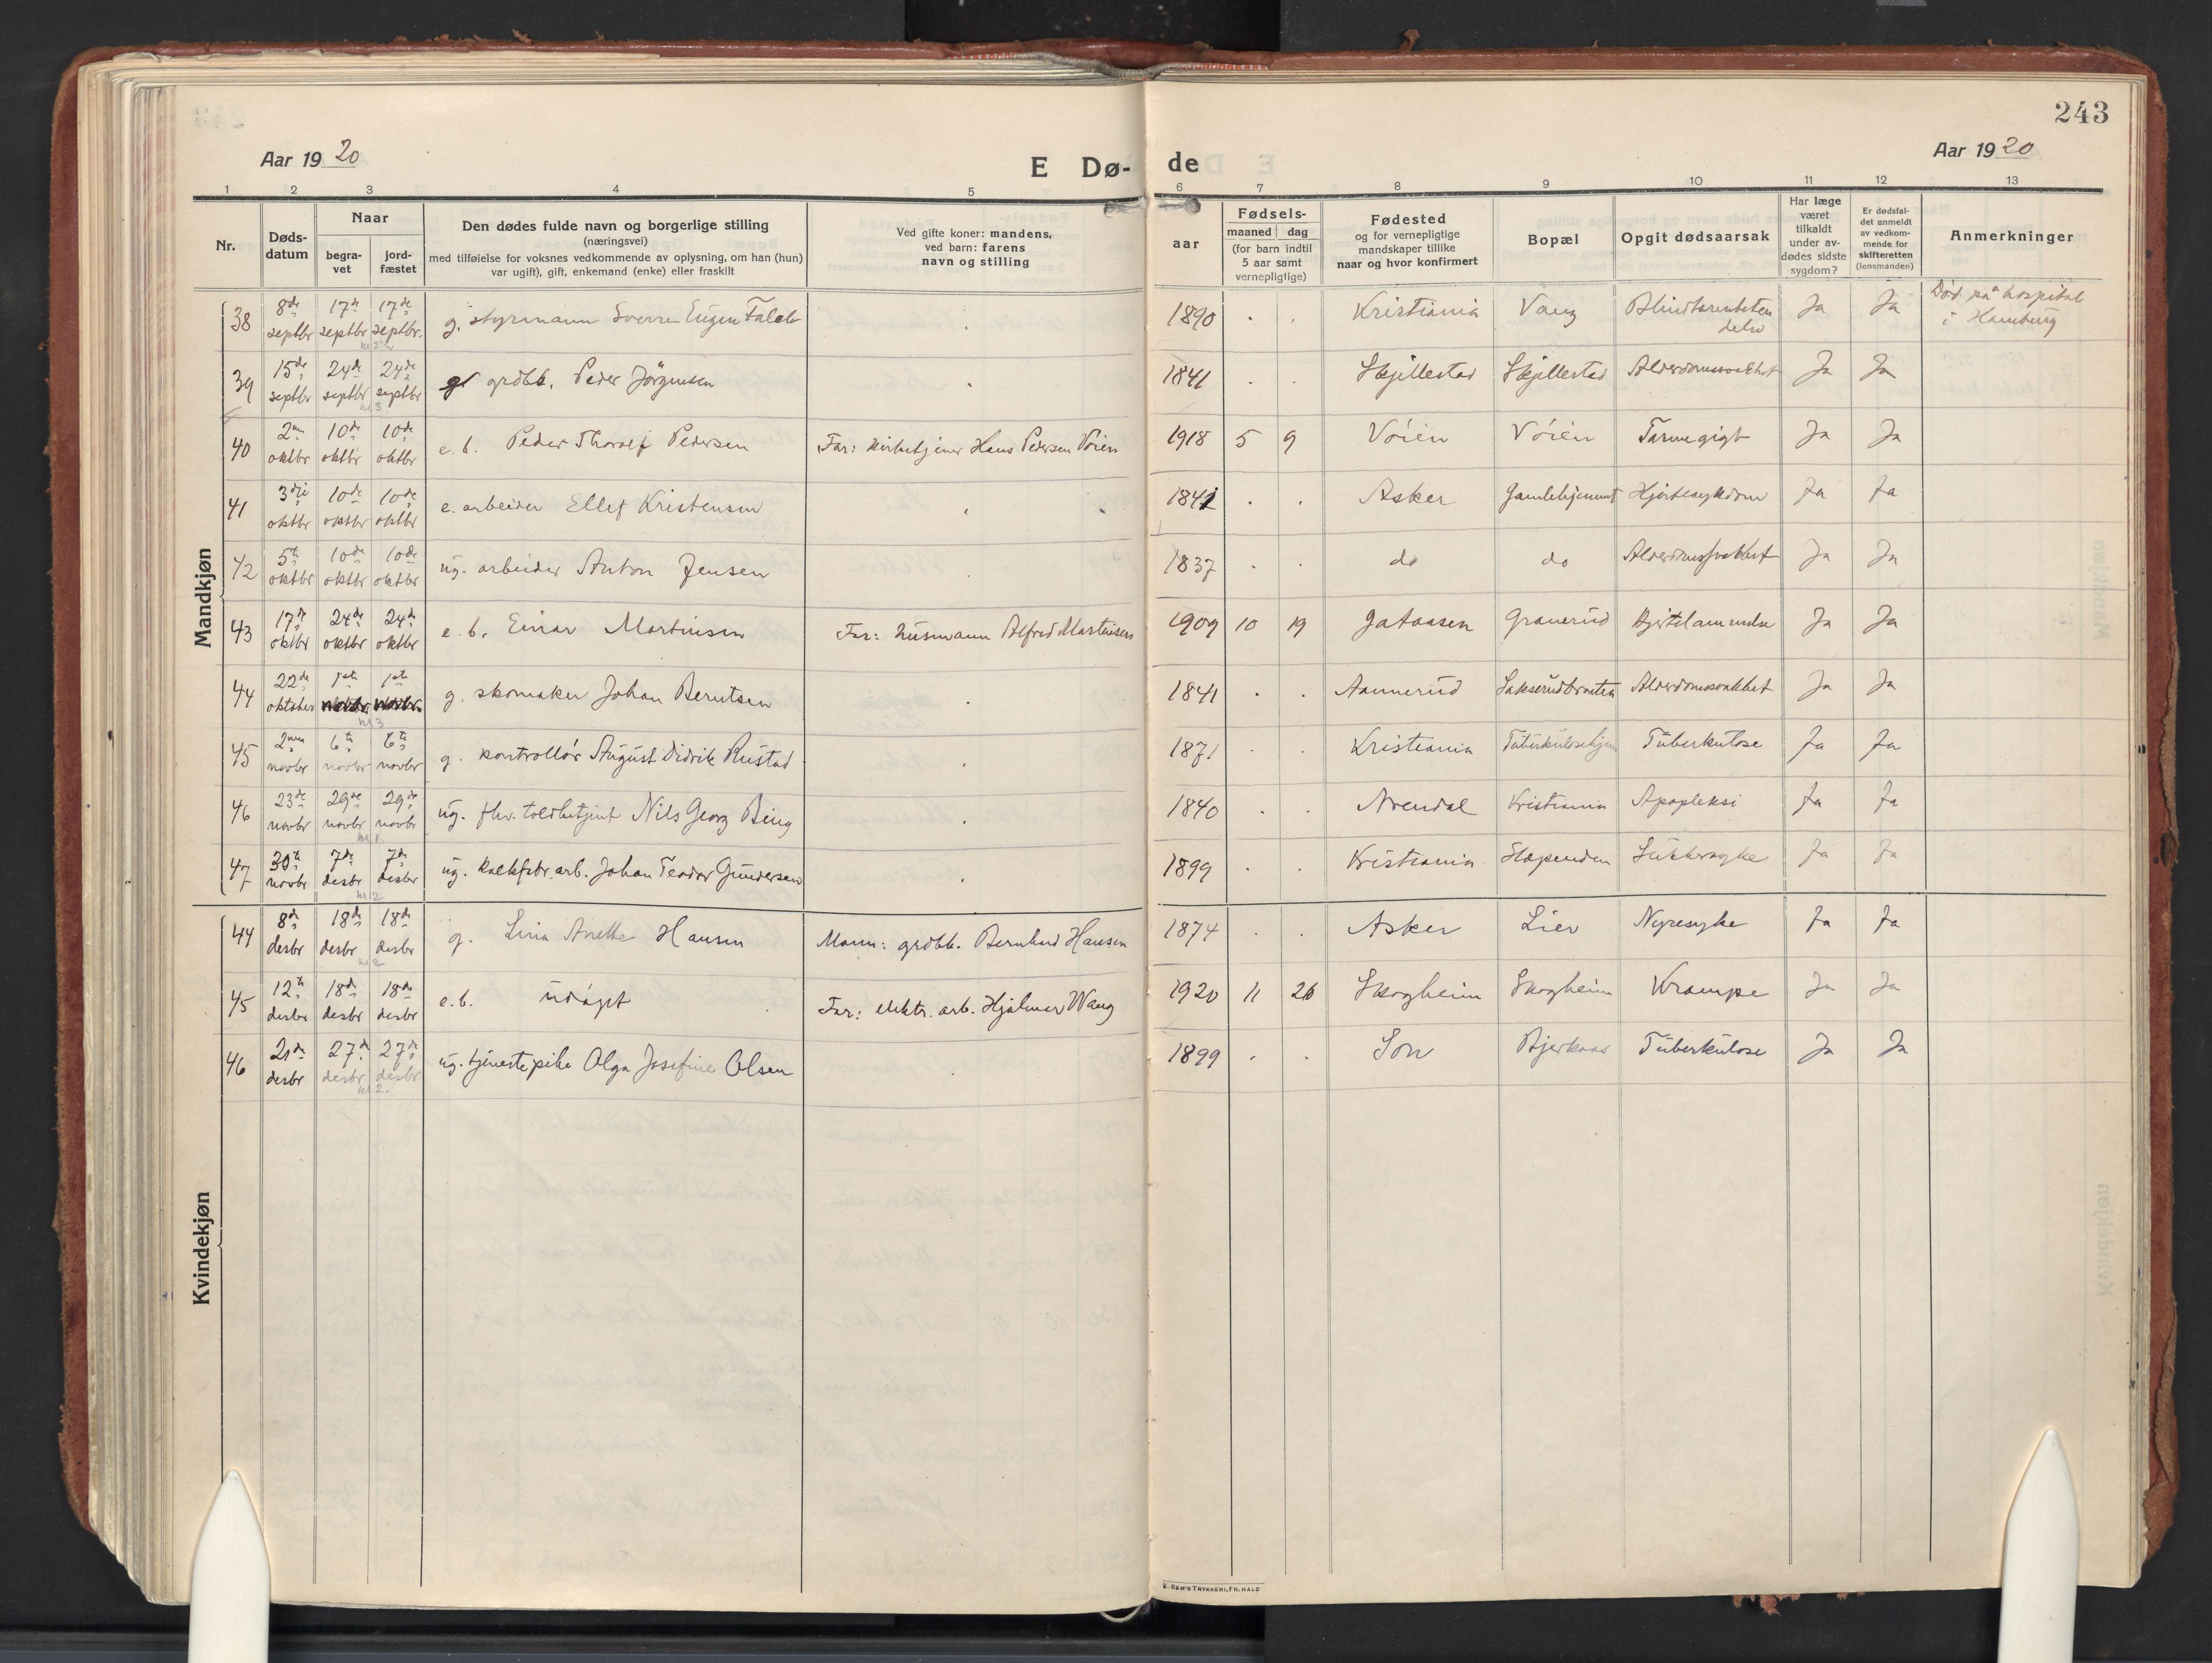 243
Aar 1920
E Dø-de
Aar 1920
1 2 3 4 5 6 7 8 9 10 11 12 13
Nr.
Døds-datum
Naar
begra-vet
jord-fæstet
Den dødes fulde navn og borgerlige stilling
(næringsvei)
med tilføielse for voksnes vedkommende av oplysning, om han (hun)
var ugift), gift, enkemand (enke) eller fraskilt
Ved gifte koner: mandens,
ved barn: farens
navn og stilling
aar
Fødsels-
maaned dag
(for barn indtil
5 aar samt
vernepligtige)
Fødested
og for vernepligtige
mandskaper tillike
naar og hvor konfirmert
Bopæl
Opgit dødsaarsak
Har læge
været
tilkaldt
under av-
dødes sidste
sygdom?
Er dødsfal-
det anmeldt
av vedkom-
mende for
skifteretten
(lensmanden)
Anmerkninger
Mandkjøn
38 8de septbr 17de septbr 17de septbr. g. styrmann Sverre Eugen Falch . 1890 . . Kristiania Vang Blindtarmbeten delse Ja Ja Død på hospital i Hamburg
39 15de septbr 24de septbr 24de septbr g grdbr. Peder Jörgensen . 1841 . . Skjillestad Skjillestad Alderdomssvakhet Ja Ja
40 2nn oktbr 10de oktbr 10de oktbr e. b. Peder Thoralf Pedersen Far: kirketjener Hans Pedersen Vöien 1918 5 9 Vöien Vöien Tarmegigt Ja Ja
41 3dje oktbr 10de oktbr 10de oktbr e. arbeider Ellef Kristensen . 1841 . . Asker Gamlehjemmet Hjertesykdom Ja Ja
42 5te oktbr 10de oktbr 10de oktbr ug. arbeider Anton Jensen . 1837 . . do do Alderdomssvakhet Ja Ja
43 17de oktbr 24de oktbr 24de oktbr e. b. Einar Martinsen Far: husmann Alfred Martinsen 1909 10 19 Gataasen Granerud Hjertelammelse Ja Ja
44 22de oktober 1ste novbr. 1ste novbr. g. skomaker Johan Berntsen . 1841 . . Aamerud Lakserudbraaten Alderdomssvakhet Ja Ja
45 2nn novbr 6te novbr 6te novbr g. kontrollör August Didrik Rustad . 1871 . . Kristiania Tuberkulosehjem Tuberkulose Ja Ja
46 23de novbr 29de novbr 29de novbr ug. fhv. toldbetjent Nils Georg Being . 1840 . . Arendal Kristiania Apopleksi Ja Ja
47 30te novbr 7de desbr 7de desbr ug. kalkfbr. arb. Johan Teodor Gundersen . 1899 . . Kristiania Slependen Sukkersyke Ja Ja
Kvindekjøn
44 8de desbr 18de desbr 18de desbr g. Lina Anette Hansen Mann: grdbr. Bernhard Hansen 1874 . . Asker Lier Nyresyke Ja Ja
45 12te desbr 18de desbr 18de desbr e. b. udöpt Far: elektr. arb. Hjalmar Wang 1920 11 26 Skogheim Skogheim Krampe Ja Ja
46 21de desbr 27de desbr 27de desbr ug. tjenestepike Olga Josefine Olsen . 1899 . . Son Bjerkaas Tuberkulose Ja Ja
E. SEM'S TRYKKERI, FR.HALD